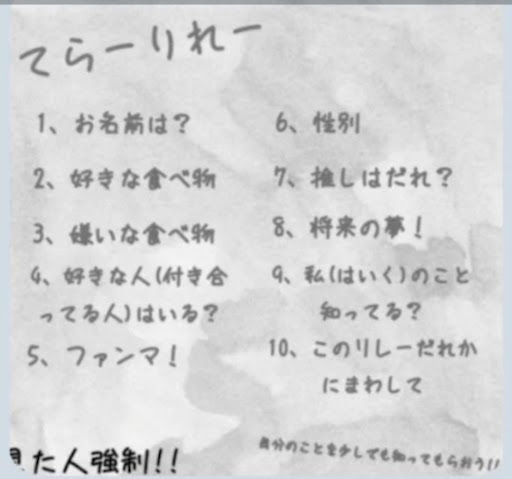 てらーりれー
1、お名前は？
2、好きな食べ物
3、嫌いな食べ物
4、好きな人(付き合
ってる人)はいる？
5、ファンマ！
6、性別
7、推しはだれ？
8、将来の夢！
9、私(はいく)のこと
知ってる？
10、このリレーだれか
にまわして
見た人強制!!
自分のことを少しでも知ってもらおう!!